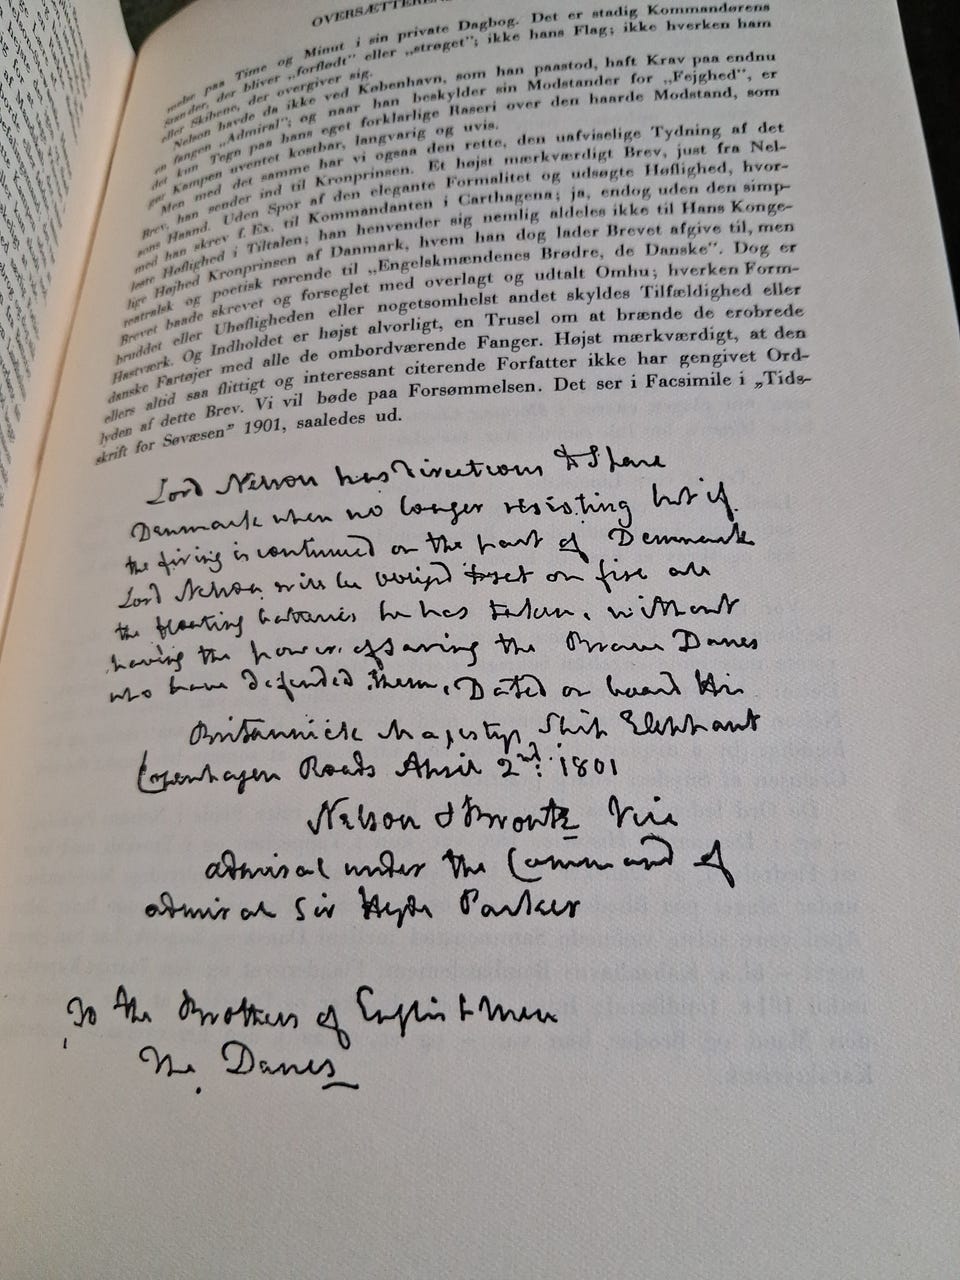 OVERSÆTTEREN
paa Time og Minut i sin private Dagbog. Det er stadig Kommandørens
der bliver „forflødt” eller „strøget”; ikke hans Flag; ikke hverken ham
eller Skibene, der overgiver sig.
Nelson havde da ikke ved København, som han paastod, haft Krav paa endnu
en fangen „Admiral”; og naar han beskylder sin Modstander for „Fejghed”, er
det kun Tegn paa hans eget forklarlige Raseri over den haarde Modstand, som
gør Kampen uventet kostbar, langvarig og uvis.
Men med det samme har vi ogsaa den rette, den uafviselige Tydning af det
Brev, han sender ind til Kronprinsen. Et højst mærkværdigt Brev, just fra Nel-
sons Haand. Uden Spor af den elegante Formalitet og udsøgte Høflighed, hvor-
med han skrev f. Ex. til Kommandanten i Carthagena; ja, endog uden den simp-
leste Høflighed i Tiltalen; han henvender sig nemlig aldeles ikke til Hans Konge-
lige Højhed Kronprinsen af Danmark, hvem han dog lader Brevet afgive til, men
teatralsk og poetisk rørende til „Engelskmændenes Brødre, de Danske”. Dog er
Brevet baade skrevet og forseglet med overlagt og udtalt Omhu; hverken Form-
bruddet eller Uhøfligheden eller nogetsomhelst andet skyldes Tilfældighed eller
Hastværk. Og Indholdet er højst alvorligt, en Trusel om at brænde de erobrede
danske Fartøjer med alle de ombordværende Fanger. Højst mærkværdigt, at den
ellers altid saa flittigt og interessant citerende Forfatter ikke har gengivet Ord-
lyden af dette Brev. Vi vil bøde paa Forsømmelsen. Det ser i Facsimile i „Tids-
skrift for Søvæsen” 1901, saaledes ud.
Lord Nelson has directions to Spare
Denmark when no longer resisting but if
the firing is continued on the part of Denmark
Lord Nelson will be obliged to set on fire all
the floating batteries he has taken, without
having the power of saving the Brave Danes
who have defended them. Dated on board His
Britannick Majestys Ship Elephant
Copenhagen Roads April 2nd: 1801
Nelson & Bronte Vice
admiral under the Command of
admiral Sir Hyde Parker
To the Brothers of Englishmen
The Danes